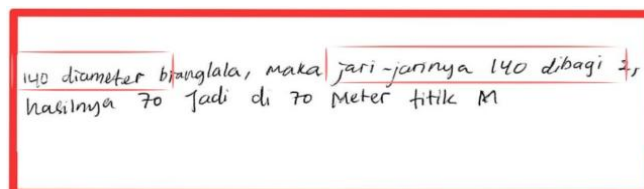 140 diameter bianglala, maka jari-jarinya 140 dibagi 2,
hasilnya 70 Jadi di 70 Meter titik M